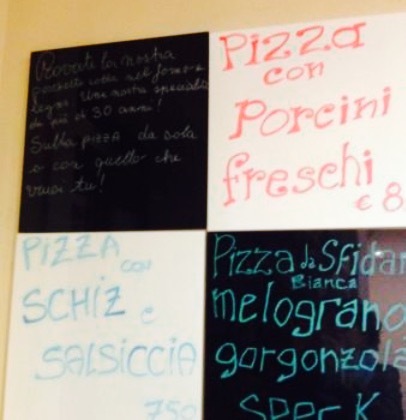 Provate la nostra
porchetta cotta nel forno a
legna. Una nostra specialità
da più di 30 anni!
Sulla pizza da sola
o con quello che
vuoi tu!
Pizza
con
Porcini
freschi
€ 8
PIZZA
con
SCHIZ e
SALSICCIA
750
Pizza da Sfidar
Bianca
melograno
gorgonzola
SPECK